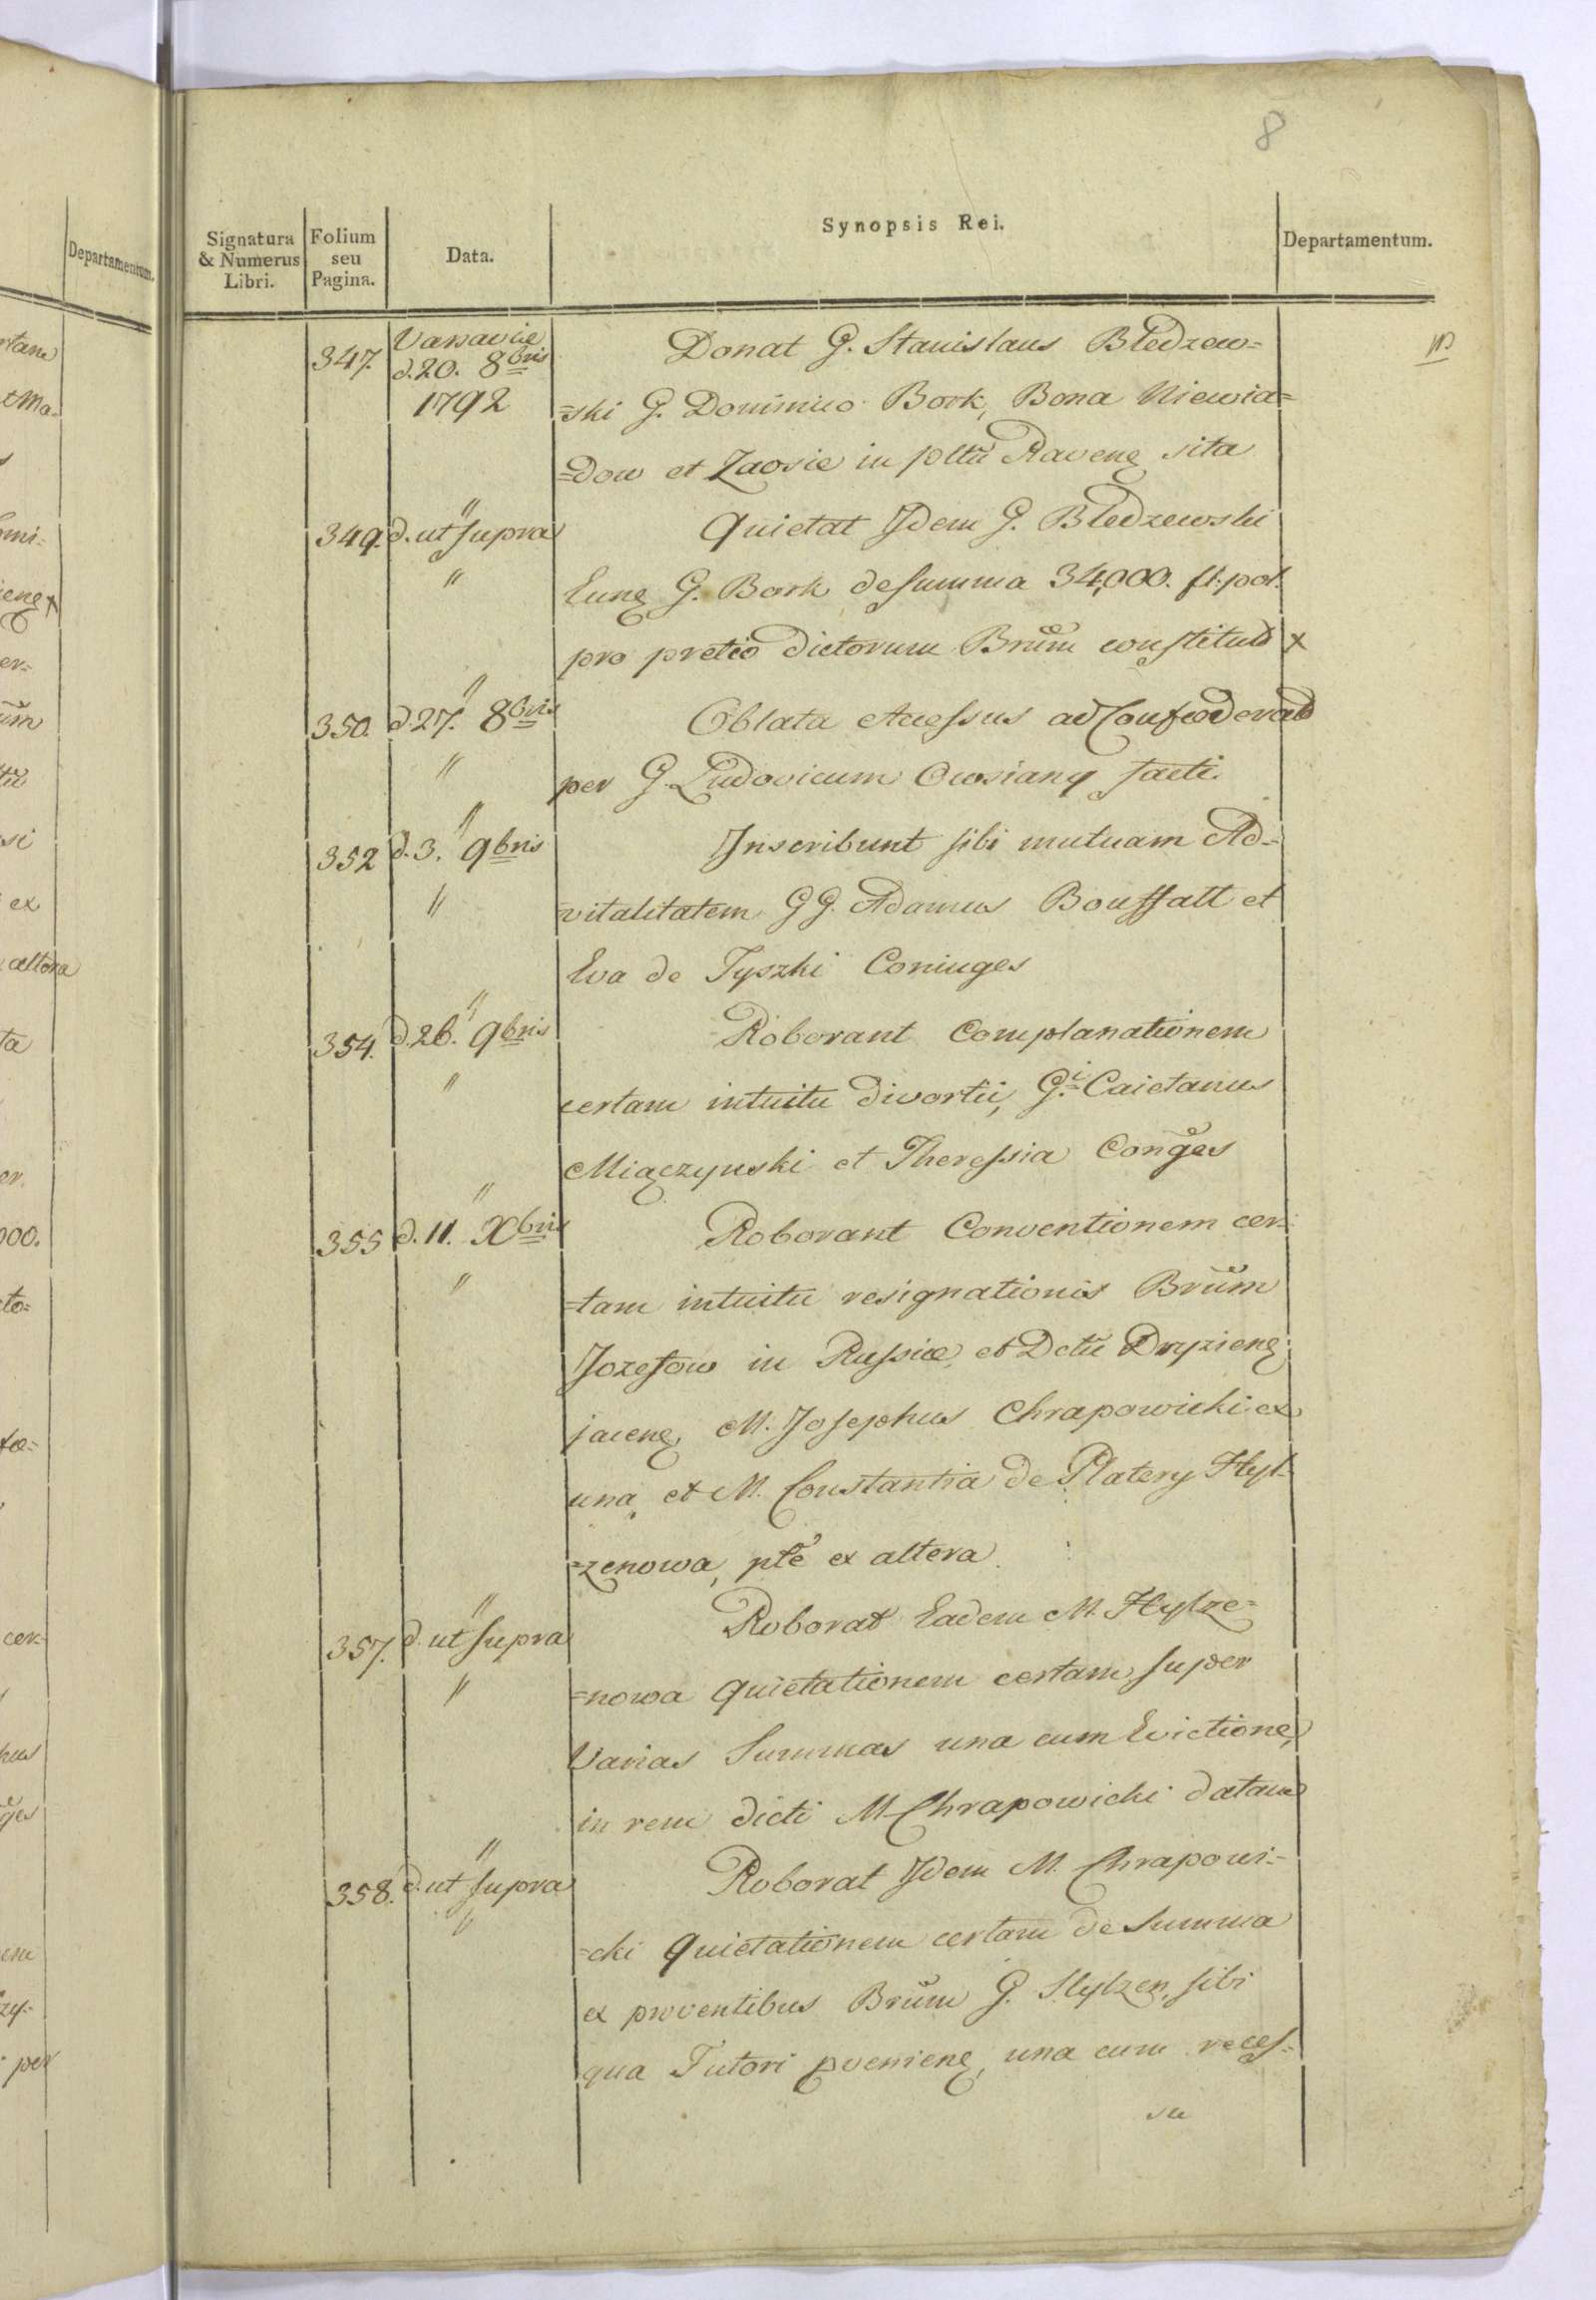 8
Signatura & Numerus Libri.
Folium seu Pagina.
Data.
Synopsis Rei.
Departamentum.
Departamentum.
347. Varsaviæ d. 20. 8bris 1792 Donat G. Stanislaus Bledzew=
=ski G. Dominico Bork, Bona Niewia=
=dow et Zaosie in pltũ Ravenȩ sita
349. d. ut supra Quietat Idem G. Bledzewski
" Eunȩ G. Bork de summa 34,000. fl. pol.
pro pretio dictorum Brũm constitut x
350. d. 27. 8bris Oblata Accessus ad Confœderat
" per G. Ludovicum Owsiany facti.
352 d. 3. 9bris Inscribunt sibi mutuam Ad=
" =vitalitatem GG. Adamus Bouffałł et
Eva de Tyszki Coniuges
354. d. 26. 9bris Roborant Complanationem
" certam intuitu divortii, G.i Caietanus
Miączynski et Theressia Conges
355 d. 11. Xbris Roborant Conventionem cer=
" =tam intuitu resignationis Brũm
Jozefow in Russia, et Dctũ Dryzienȩ
jacenȩ, M. Josephus Chrapowicki ex
una, et M. Constantia de Platery Hyl=
=zenowa, pte ex altera
357. d. ut supra Roborat Eadem M. Hylze=
" =nowa quietationem certam, super
Varias Summas una cum Evictione,
in rem dicti M. Chrapowicki datam
358. d. ut supra Roborat Idem M. Chrapowi=
" =cki quietationem certam de Summa
ex proventibus Brũm G. Hylzen, sibi
qua Tutori pvenienȩ, una cum reces=
su